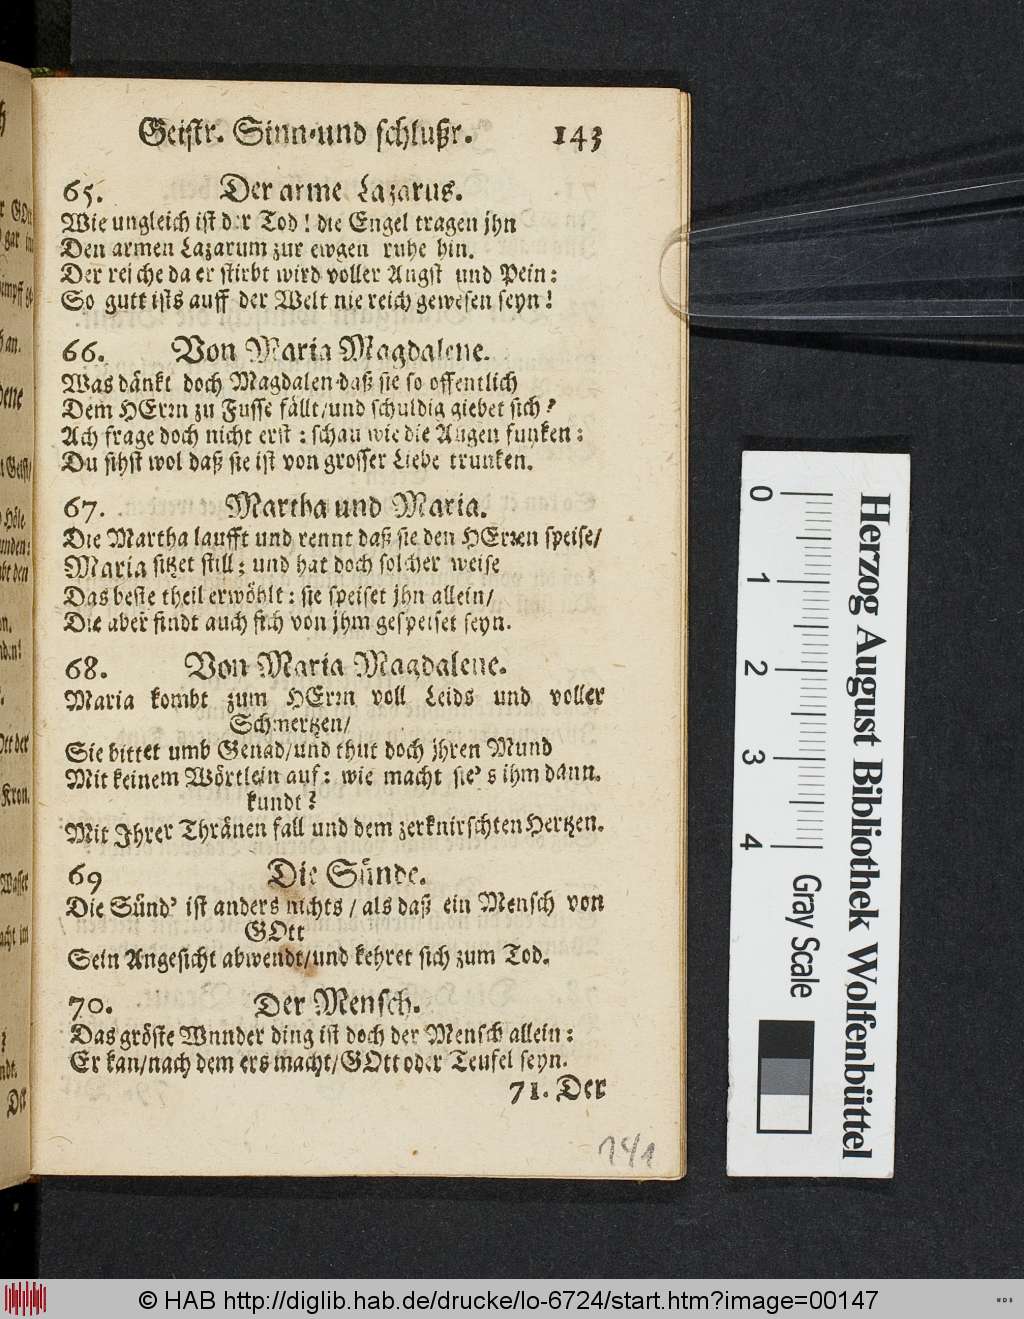 Geistr. Sinn-und schlußr. 143
65. Der arme Lazarus.
Wie ungleich ist der Tod! die Engel tragen jhn
Den armen Lazarum zur ewgen ruhe hin.
Der reiche da er stirbt wird voller Angst und Pein:
So gutt ists auff der Welt nie reich gewesen seyn!
66. Von Maria Magdalene.
Was dänkt doch Magdalen daß sie so offentlich
Dem HErrn zu Fusse fällt/und schuldig giebet sich?
Ach frage doch nicht erst: schau wie die Augen funken:
Du sihst wol daß sie ist von grosser Liebe trunken.
67. Martha und Maria.
Die Martha laufft und rennt daß sie den HErren speise/
Maria sitzet still; und hat doch solcher weise
Das beste theil erwöhlt: sie speiset jhn allein/
Die aber findt auch sich von jhm gespeiset seyn.
68. Von Maria Magdalene.
Maria kombt zum HErrn voll Leids und voller
Schmertzen/
Sie bittet umb Genad/und thut doch jhren Mund
Mit keinem Wörtlein auf: wie macht sie's ihm dann.
kundt?
Mit Ihrer Thränen fall und dem zerknirschten Hertzen.
69 Die Sünde.
Die Sünd' ist anders nichts / als daß ein Mensch von
GOtt
Sein Angesicht abwendt/und kehret sich zum Tod.
70. Der Mensch.
Das gröste Wunder ding ist doch der Mensch allein:
Er kan/nach dem ers macht/GOtt oder Teufel seyn.
71. Der
141
0 1 2 3 4
Gray Scale
Herzog August Bibliothek Wolfenbüttel
© HAB http://diglib.hab.de/drucke/lo-6724/start.htm?image=00147